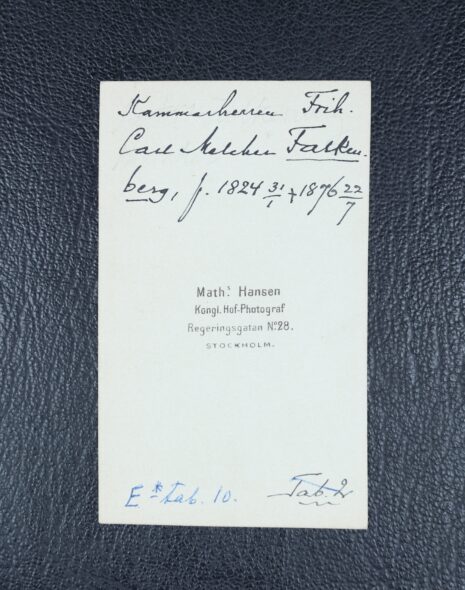 Kammarherren Frih.
Carl Melcher Falken-
berg, f. 1824 31/1 † 1876 22/7
Maths. Hansen
Kongl. Hof-Photograf
Regeringsgatan No 28.
STOCKHOLM.
E* tab. 10.
Tab. 2